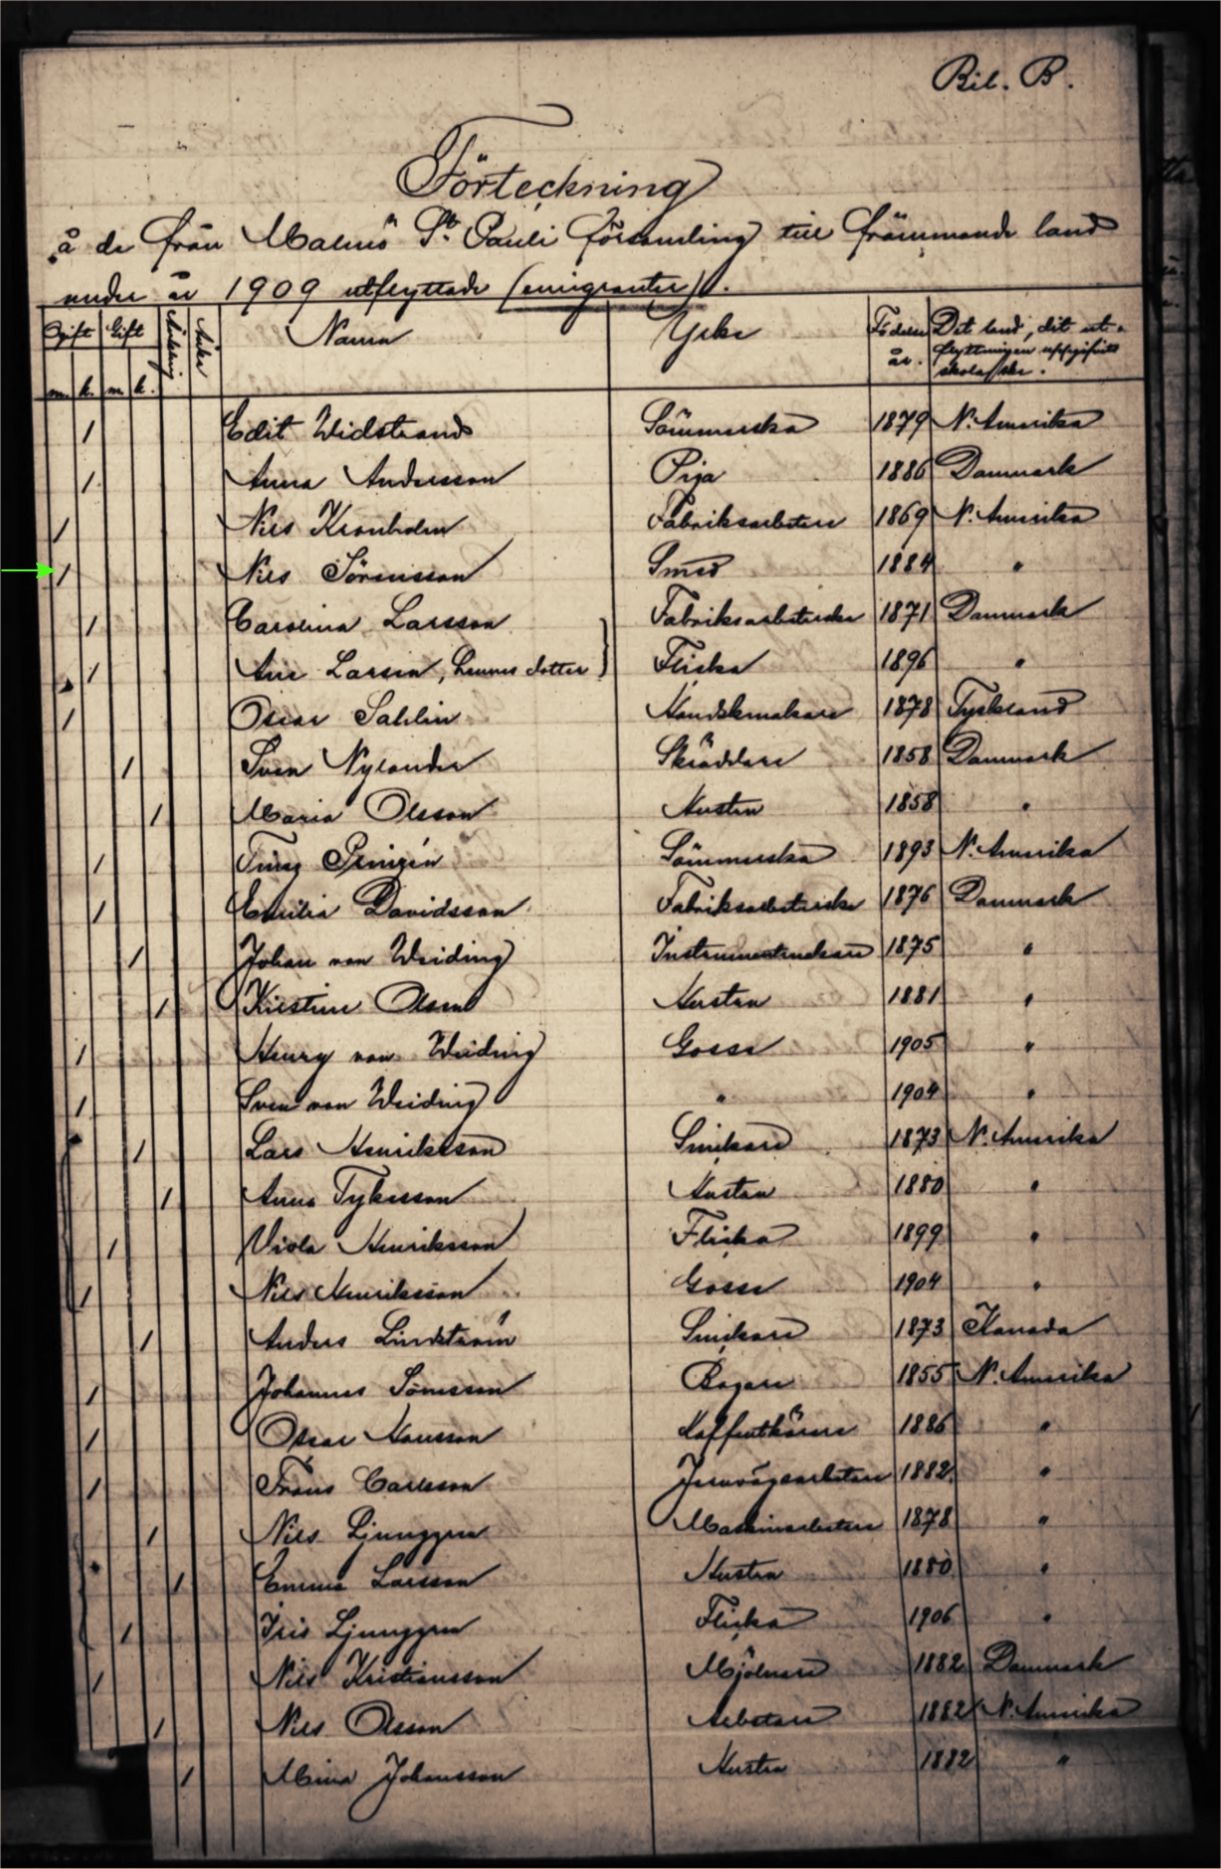 Bil. B.
Förteckning
å de från Malmö St. Pauli församling till främmande land
under år 1909 utflyttade (emigranter).
Ogift Gift Änkling Änka Namn Yrke Födelse Det land, dit ut-
år. flyttningen uppgifvits
m. k. m. k. skola ske.
/ Edit Widstrand Sömmerska 1879 N. Amerika
/ Anna Andersson Piga 1886 Danmark
/ Nils Kronholm Fabriksarbetare 1869 N. Amerika
/ Nils Sörensson Smed 1884 "
/ Carolina Larsson Fabriksarbeterska 1871 Danmark
/ Larsen, hennes dotter } Flicka 1896 "
/ Oscar Sahlin Handskmakare 1878 Tyskland
/ Sven Nylander Skräddare 1858 Danmark
/ Maria Olsson Hustru 1858 "
/ Sömmerska 1893 N. Amerika
/ Emilia Davidsson Fabriksarbeterska 1876 Danmark
/ Johan von Weiding Instrumentmakare 1875 "
/ Kirstine Olsen Hustru 1881 "
/ Henry von Weiding Gosse 1905 "
/ Sven von Weiding " 1904 "
/ Lars Henriksson Snickare 1873 N. Amerika
/ Anna Tykesson Hustru 1880 "
/ Viola Henriksson Flicka 1899 "
/ Nils Henriksson Gosse 1904 "
/ Anders Lindström Snickare 1873 Kanada
/ Johannes Bagare 1855 N. Amerika
/ Oscar Hansson Kofferthörare 1886 "
/ Frans Carlsson Jernvägsarbetare 1882 "
/ Nils Ljunggren Maskinarbetare 1878 "
/ Emma Larsson Hustru 1880 "
/ Iris Ljunggren Flicka 1906 "
/ Nils Kristiansson Mjölnare 1882 Danmark
/ Nils Olsson Arbetare 1882 N. Amerika
/ Mina Johansson Hustru 1882 "